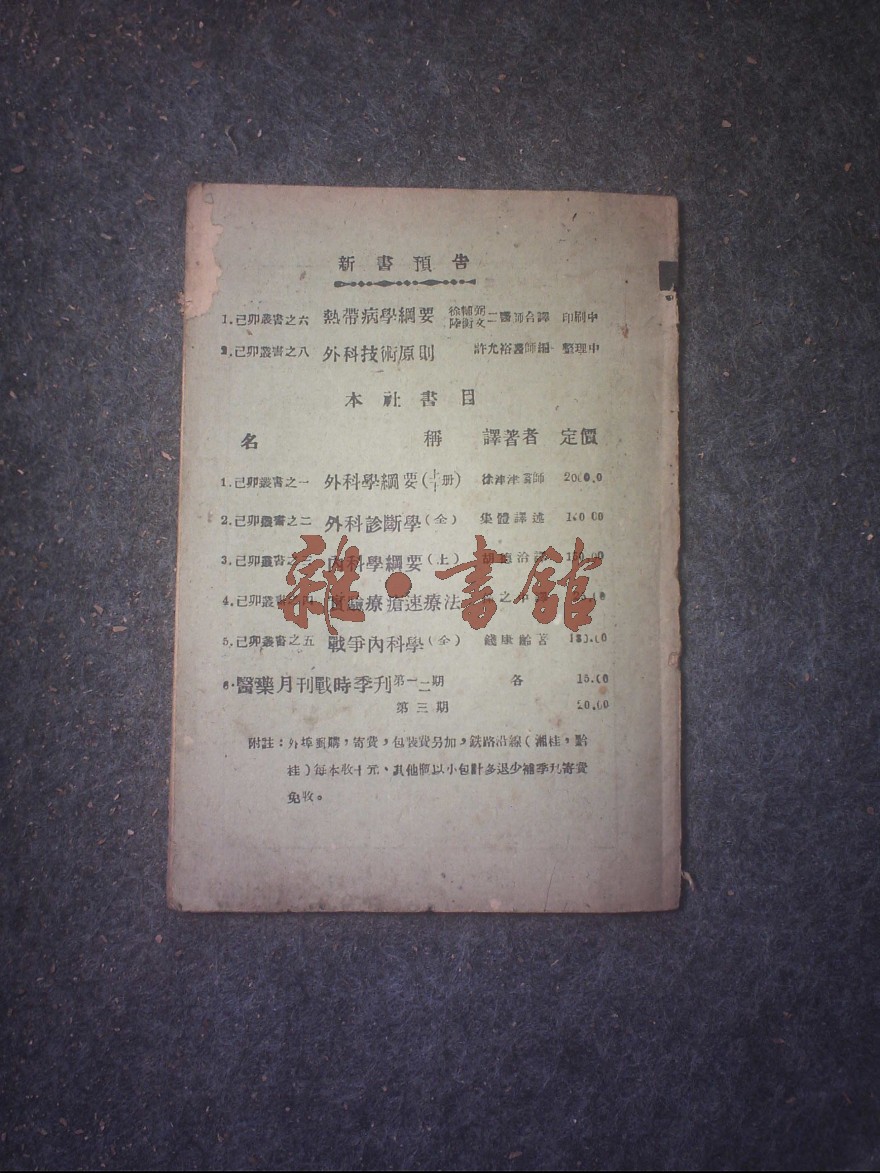 新書預告
1.己卯叢書之六 熱帶病學綱要 徐輔弼 陸衛文 二醫師合譯 印刷中
2.己卯叢書之八 外科技術原則 許尤裕醫師編 整理中
本社書目
名 稱 譯著者 定價
1.己卯叢書之一 外科學綱要(册) 徐 2000.0
2.己卯叢書之二 外科診斷學(全) 集體譯述 00
3.己卯叢書之三 內科學綱要(上)
4.己卯叢書之四 療瘡速療法
雜·書館
5.己卯叢書之五 戰爭內科學(全) 錢康齡著
6.醫藥月刊戰時季刊第一二期 各 15.00
第三期 20.00
附註:外埠郵購,寄費,包裝費另加,鉄路沿線(湘桂,黔
桂)每本收十元、其他郵以小包計多退少補季刋寄費
免收。